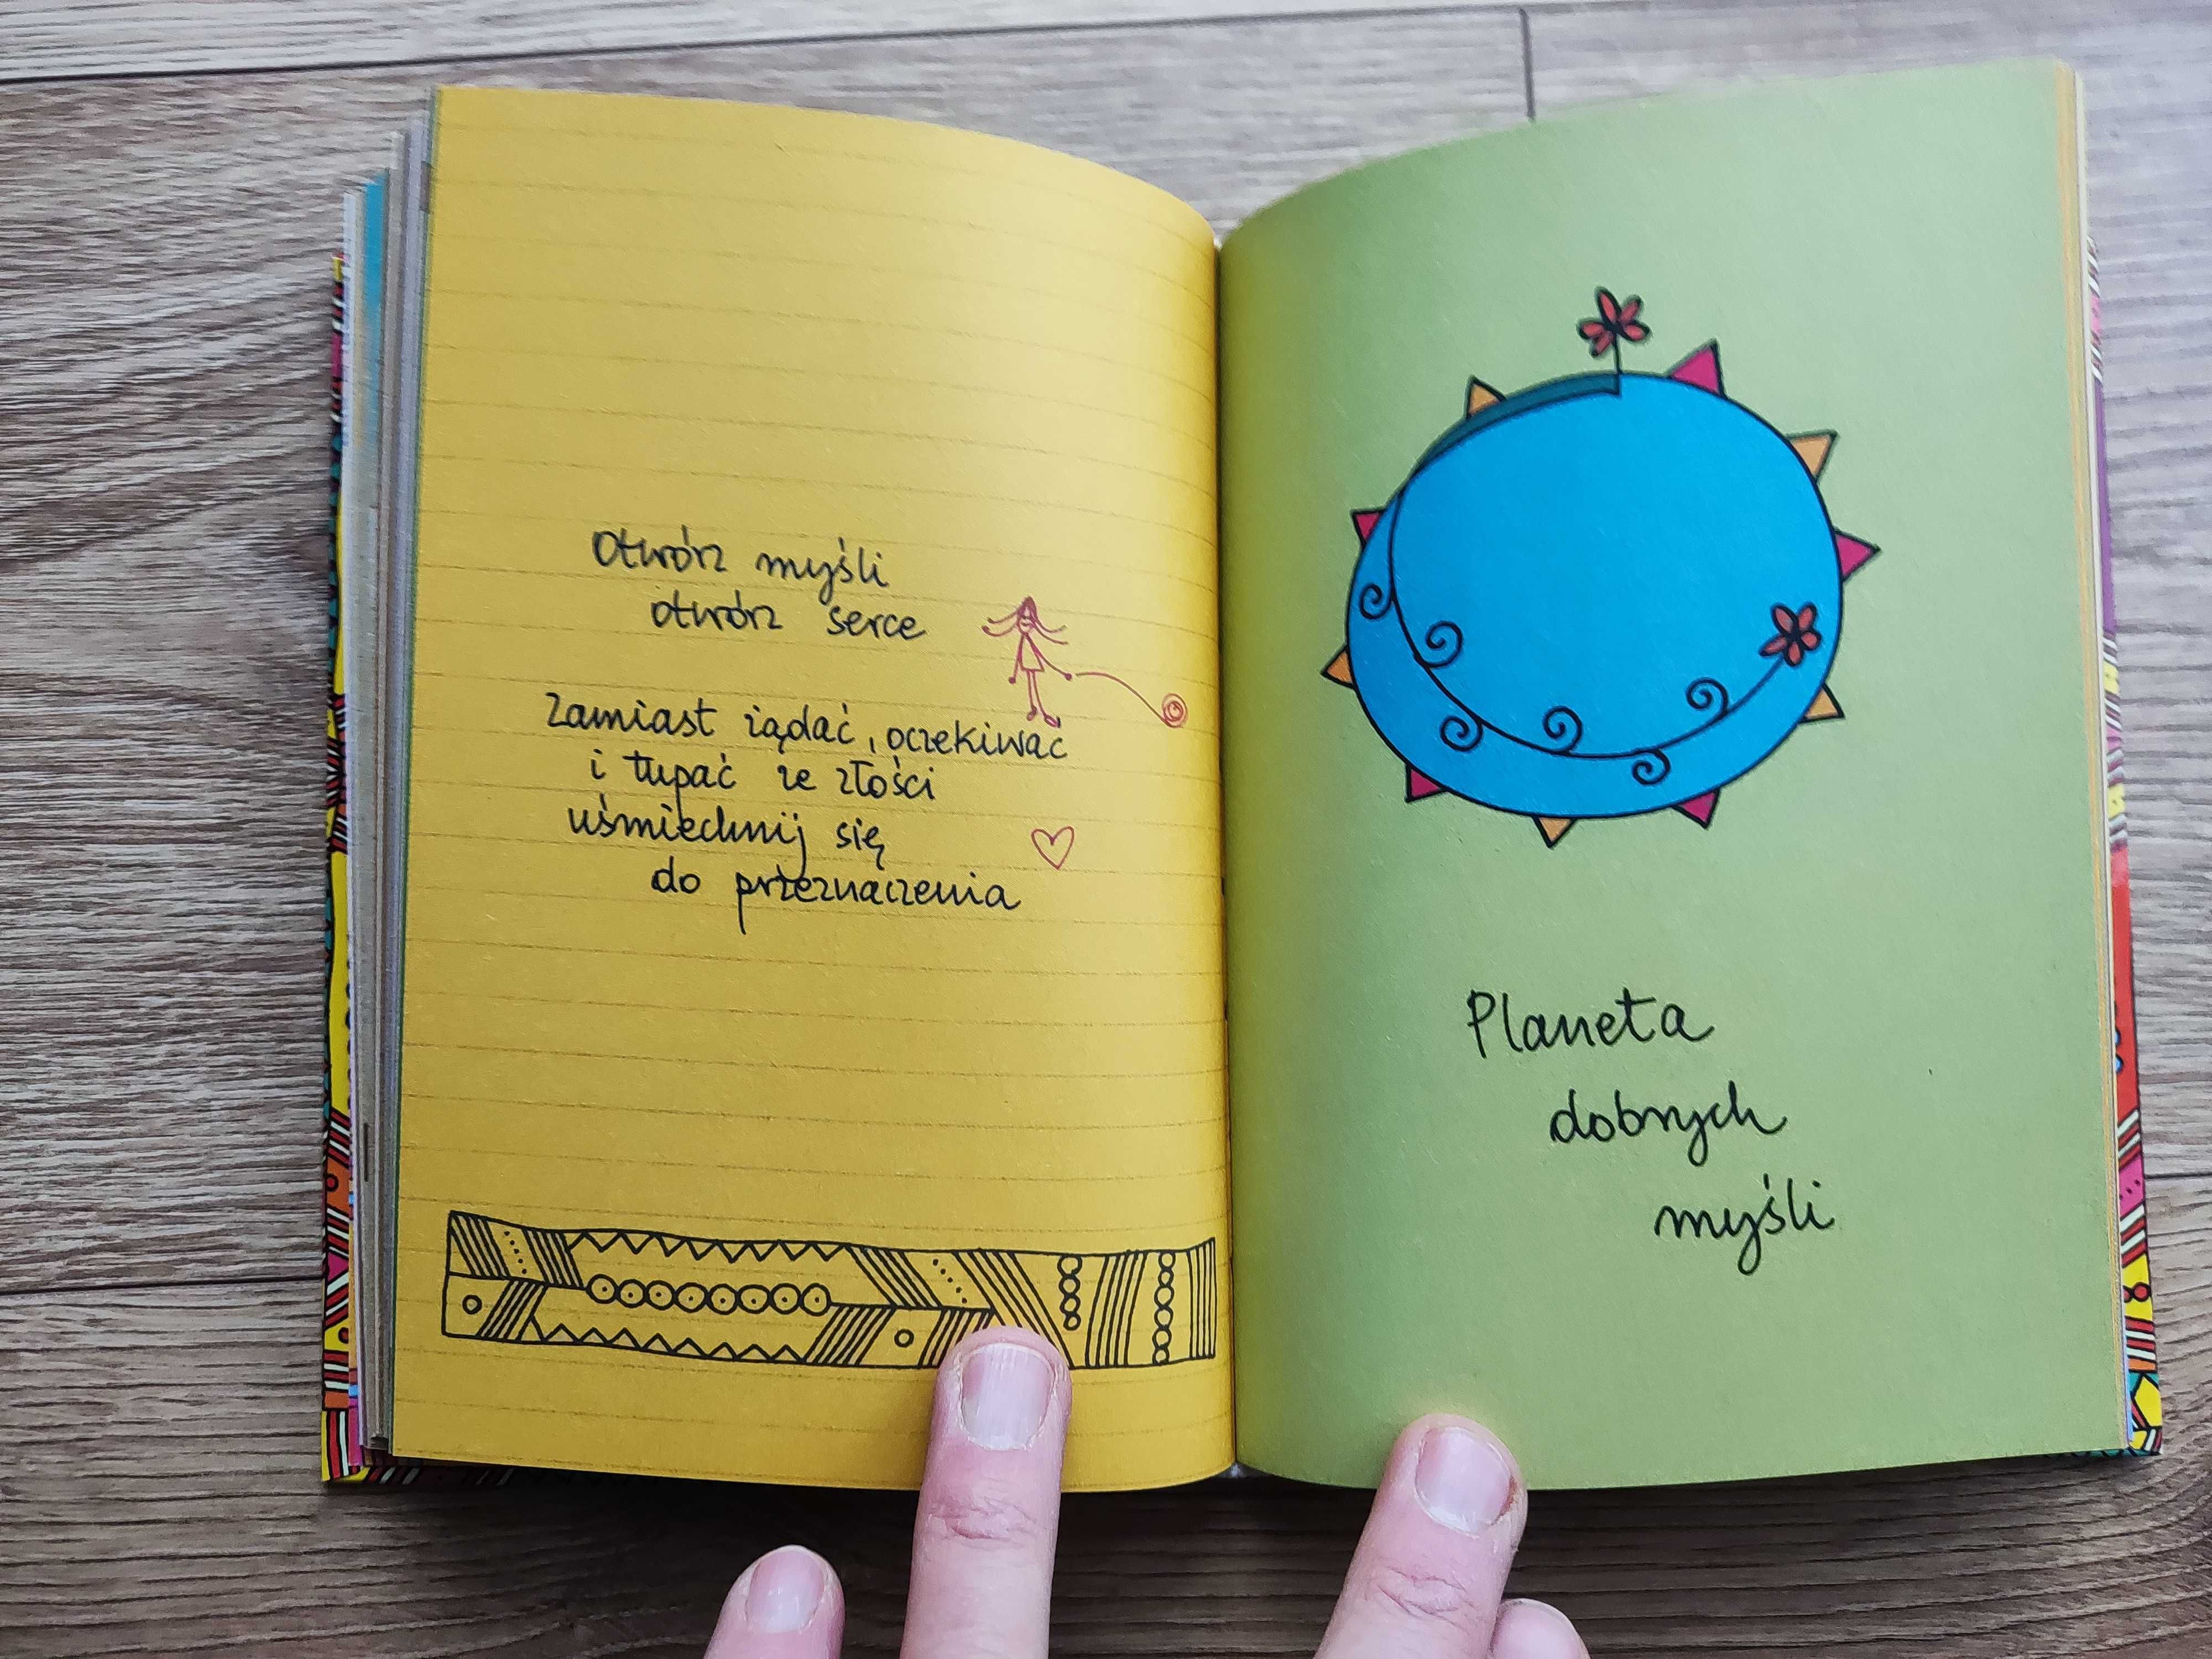 Otwórz myśli
otwórz serce
Zamiast żądać, oczekiwać
i tupać ze złości
uśmiechnij się
do przeznaczenia
Planeta
dobrych
myśli